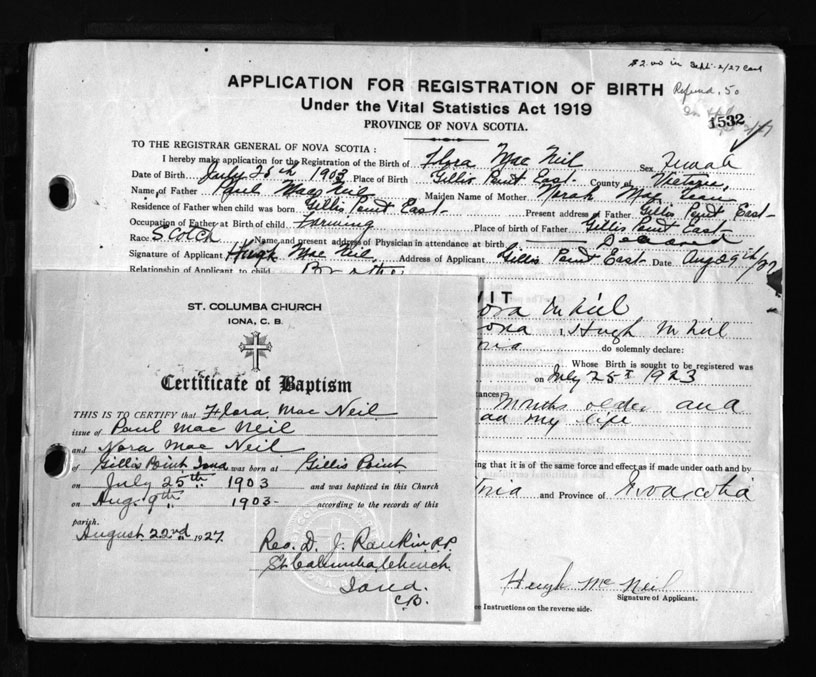 $2.00 in Sept. 2/27
Refund .50
APPLICATION FOR REGISTRATION OF BIRTH
Under the Vital Statistics Act 1919
1532
PROVINCE OF NOVA SCOTIA.
TO THE REGISTRAR GENERAL OF NOVA SCOTIA :
I hereby make application for the Registration of the Birth of Flora Mac Neil Sex Female
Date of Birth July 25th 1903 Place of Birth Gillis Point East County of Victoria,
Name of Father Paul MacNeil Maiden Name of Mother Norah Mc Lean
Residence of Father when child was born Gillis Point East Present address of Father Gillis Point East
Occupation of Father at Birth of child Farming Place of birth of Father Gillis Point East
Race Scotch Name and present address of Physician in attendance at birth Deceased
Signature of Applicant Hugh Mac Neil Address of Applicant Gillis Point East Date Aug 29th/27
Relationship of Applicant to child Brother
VIT
ora McNeil
ona I, Hugh McNeil
oria do solemnly declare:
Whose Birth is sought to be registered was
on July 25th 1923
tances
Months older and
my life
ing that it is of the same force and effect as if made under oath and by
toria and Province of Novascotia
Hugh McNeil
Signature of Applicant.
ee Instructions on the reverse side.
ST. COLUMBA CHURCH
IONA, C. B.
Certificate of Baptism
THIS IS TO CERTIFY that Flora Mac Neil
issue of Paul Mac Neil
and Nora Mac Neil
of Gillis Point Iona was born at Gillis Point
on July 25th 1903 and was baptized in this Church
on Aug. 9th 1903 according to the records of this
parish.
August 22nd 1927.
Rev. D. J. Rankin P.P.
St Columba Church
Iona.
C.B.